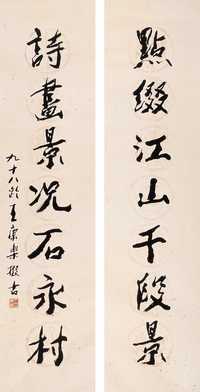 點綴江山千段景
詩畫景况石永村
九十八 王康樂